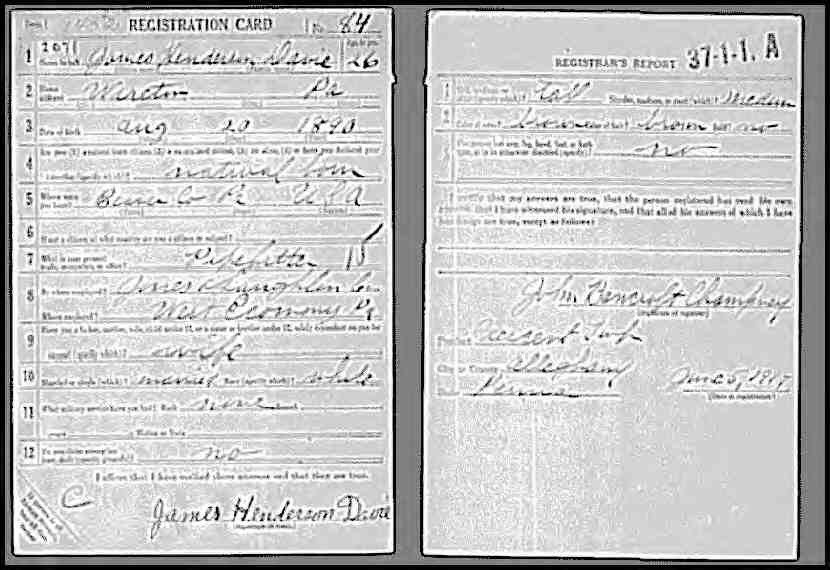 REGISTRATION CARD No. 84
1 2071 James Henderson Davie Age in yrs. 26
2 Home address Pa
3 Date of birth Aug 20 1890
4 natural born
5 Where were you born? Beaver Co Pa USA
6 If not a citizen, of what country are you a citizen or subject?
7 What is your present trade, occupation, or office? Pipefitter
8 By whom employed? Jones & Laughlin
Where employed? West Economy Pa
9 Have you a father, mother, wife, child under 12, or a sister or brother under 12, solely dependent on you for
support (specify which)? wife
10 Married or single (which)? married Race (specify which)? white
11 What military service have you had? Rank none
years Nation or State
12 Do you claim exemption from draft (specify grounds)? no
I affirm that I have verified above answers and that they are true.
C
James Henderson Davie
REGISTRAR'S REPORT 37-1-1. A
1 Tall Slender, medium, or stout (which)? Medium
2 Color of eyes? brown Color of hair? brown Bald? no
3 no
I certify that my answers are true, that the person registered has read his own
answers, that I have witnessed his signature, and that all of his answers of which I have
knowledge are true, except as follows:
John Bancroft
(Signature of registrar)
Precinct Crescent Twp
City or County Allegheny
State Penna June 5, 1917
(Date of registration)